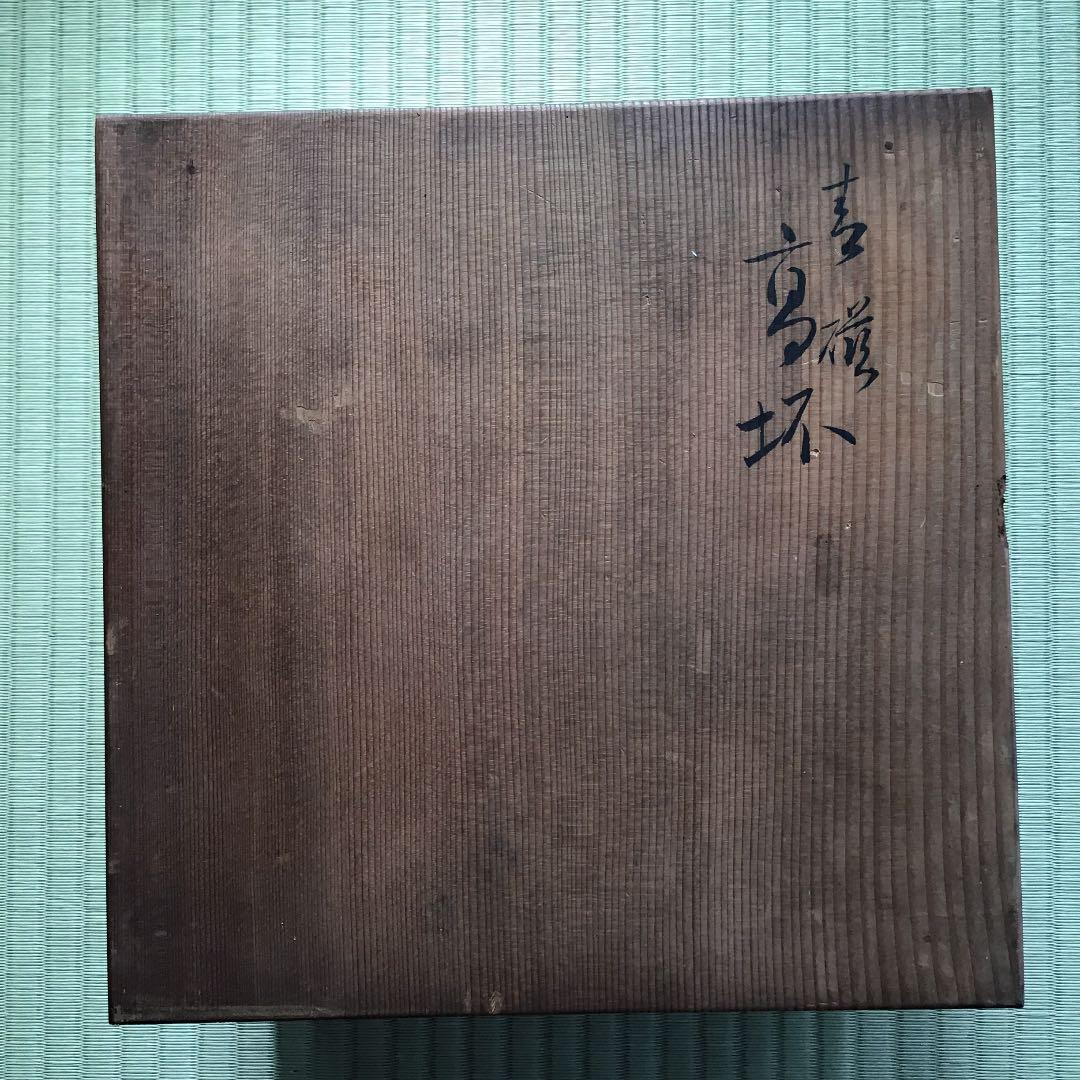 青磁
高坏